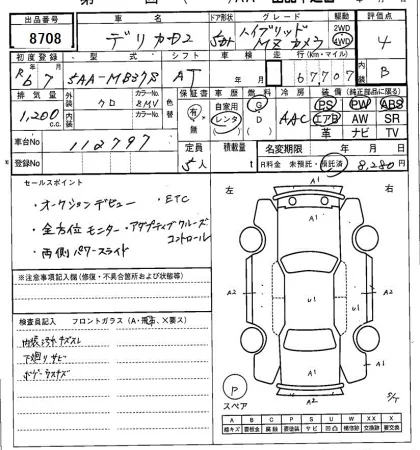 出品番号 車名 ドア形状 グレード 駆動 評価点
8708 デリカD2 5dr ハイブリッド MZ カメラ 2WD 4WD 4
初度登録 型式 シフト 車検 走行(Km・マイル) 内装
R6 7 5AA-MB37S AT 年 月 67707 B
排気量 外装 クロ カラーNo. ZMV 色替 保証書 車歴 燃料 冷房 装備(純正部品に限る)
1,200 c.c. 内装 カラーNo. 有 無 自家用 レンタ G D AAC PS PW ABS
エアB AW SR
革 ナビ TV
車台No 112797 定員 積載量 名変期限 年 月 日
登録No 5人 t R料金 未預託・預託済 8,280円
セールスポイント
・オークションデビュー ・ETC
・全方位モニター・アダプティブクルーズ
コントロール
・両側パワースライド
※注意事項記入欄(修復・不具合箇所および状態等)
検査員記入 フロントガラス(A・飛石、×要ス)
内装汚れキズスレ
下廻りサビ
ボデーウスキズ
左 右
A1
A2 U1 U1 A2
A1 A1
A2
P
スペア
A B C P S U W X XX
線キズ 要板金 腐蝕 要塗装 サビ 凹凸 補修跡 交換跡 要交換